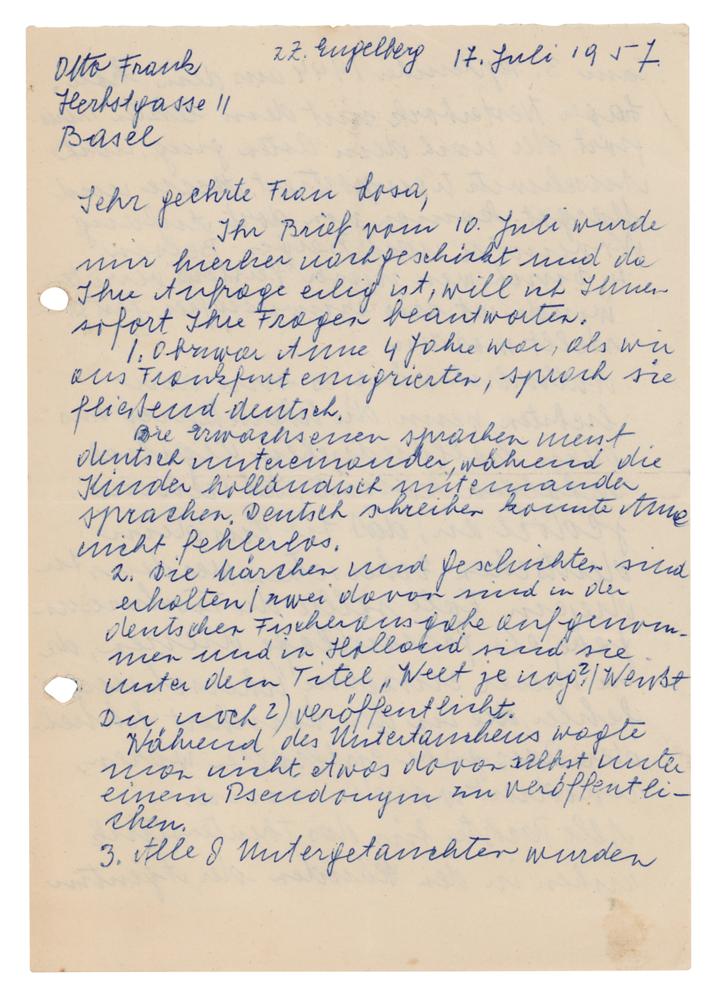 Otto Frank
Herbstgasse 11
Basel
zZ. Engelberg 17. Juli 1957.
Sehr geehrte Frau Losa,
Ihr Brief vom 10. Juli wurde
mir hierher nachgeschickt und da
Ihre Anfrage eilig ist, will ich Ihnen
sofort Ihre Fragen beantworten.
1. Obzwar Anne 4 Jahre war, als wir
aus Frankfurt emigrierten, sprach sie
fliessend deutsch.
Die Erwachsenen sprachen meist
deutsch untereinander, während die
Kinder holländisch miteinander
sprachen. Deutsch schreiben konnte Anne
nicht fehlerlos.
2. Die Märchen und Geschichten sind
erhalten / zwei davon sind in der
deutschen Fischerausgabe aufgenom-
men und in Holland sind sie
unter dem Titel „Weet je nog?" (Weißt
Du noch?) veröffentlicht.
Während des Untertauchens wagte
man nicht etwas davon selbst unter
einem Pseudonym zu veröffentli-
chen.
3. Alle 8 Untergetauchten wurden